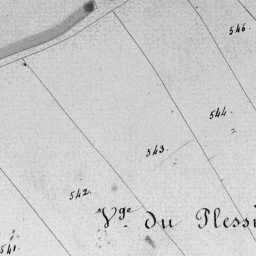 546.
544.
543.
542.
Vge du Plessi
541.